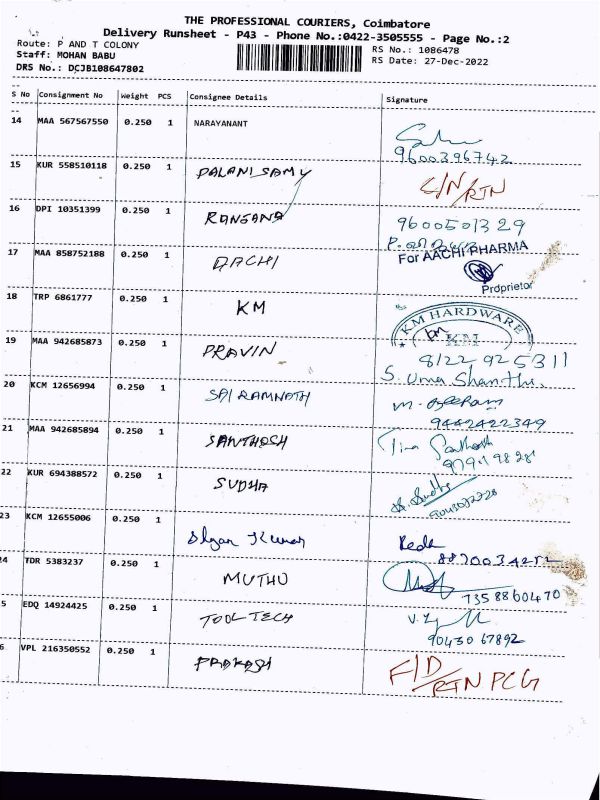 THE PROFESSIONAL COURIERS, Coimbatore
Delivery Runsheet - P43 - Phone No.:0422-3505555 - Page No.:2
Route: P AND T COLONY
Staff: MOHAN BABU
DRS No.: DCJB108647802
RS No.: 1086478
RS Date: 27-Dec-2022
S No Consignment No Weight PCS Consignee Details Signature
14 MAA 567567550 0.250 1 NARAYANANT
9600396742
15 KUR 558510118 0.250 1 PALANISAMY C/N/RTN
16 DPI 10351399 0.250 1 RANGANA 9600501329
17 MAA 858752188 0.250 1 AACHI For AACHI PHARMA
Proprietor
18 TRP 6861777 0.250 1 KM KM HARDWARE
KM
19 MAA 942685873 0.250 1 PRAVIN 8122925311
S. Uma Shanthi.
20 KCM 12656994 0.250 1 SAI RAMNATH
9442422349
21 MAA 942685894 0.250 1 SANTHOSH
22 KUR 694388572 0.250 1 SUDHA
23 KCM 12655006 0.250 1 Kumar
24 TDR 5383237 0.250 1 MUTHU
7358860470
5 EDQ 14924425 0.250 1 TOOL TECH
90430 67892
6 VPL 216350552 0.250 1 PRAKASH F/D/RTN PCG